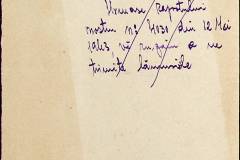 Urmare raportului
nostru nº 4030 din 12 Mai
1943, vă rugăm a ne
trimite lămuririle